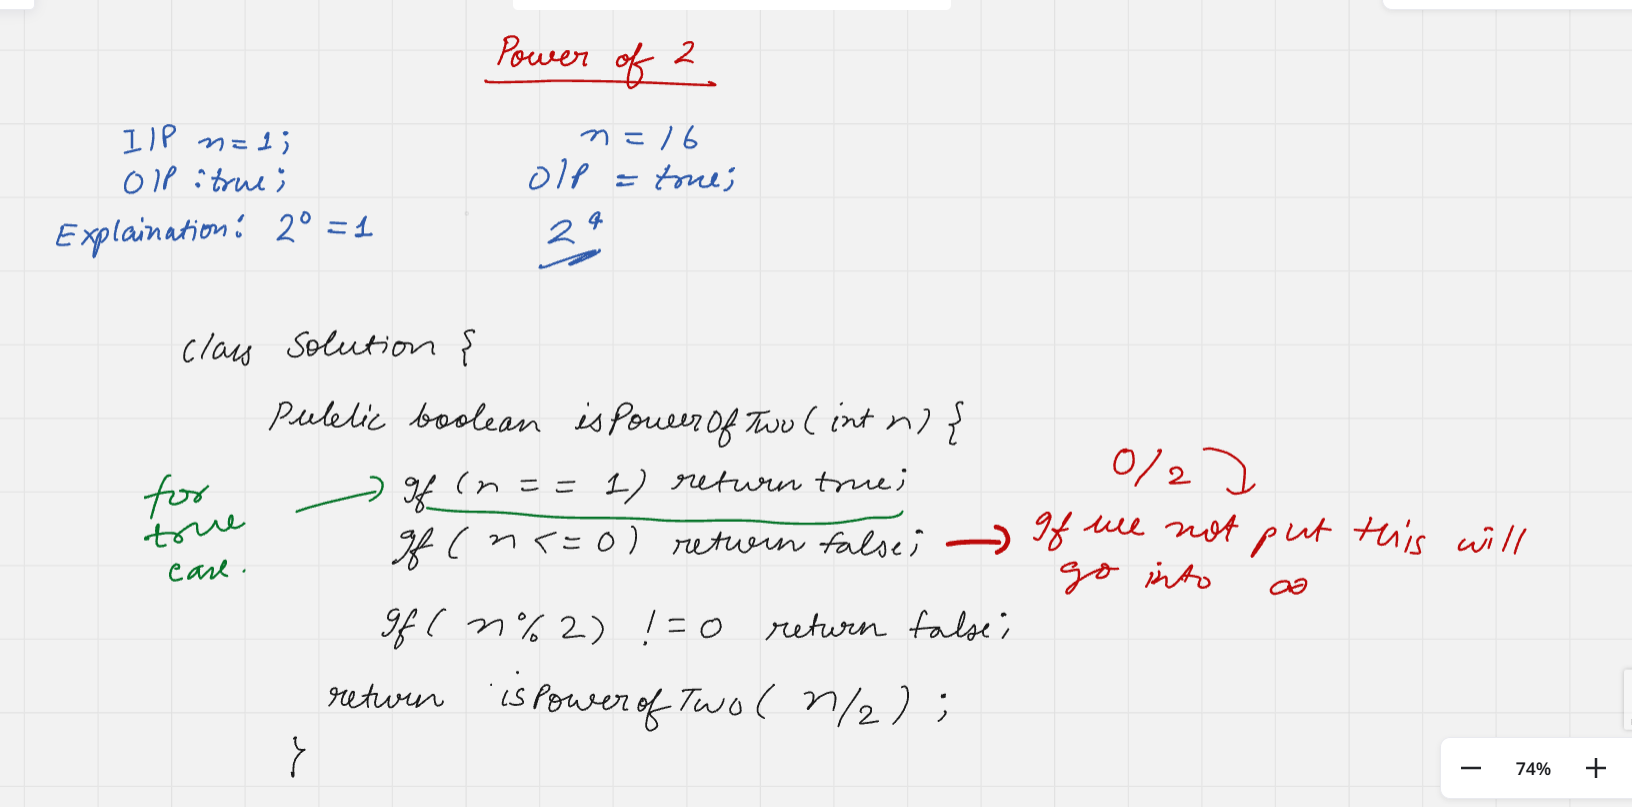 Power of 2
I/P n=1;
O/P : true;
Explaination: 2⁰ = 1
n = 16
O/P = true;
2⁴
class Solution {
Public boolean isPowerOfTwo(int n) {
for true case.
If (n == 1) return true;
If (n <= 0) return false;
0/2
If we not put this will
go into ∞
If (n % 2) != 0 return false;
return isPowerofTwo(n/2);
}
74%